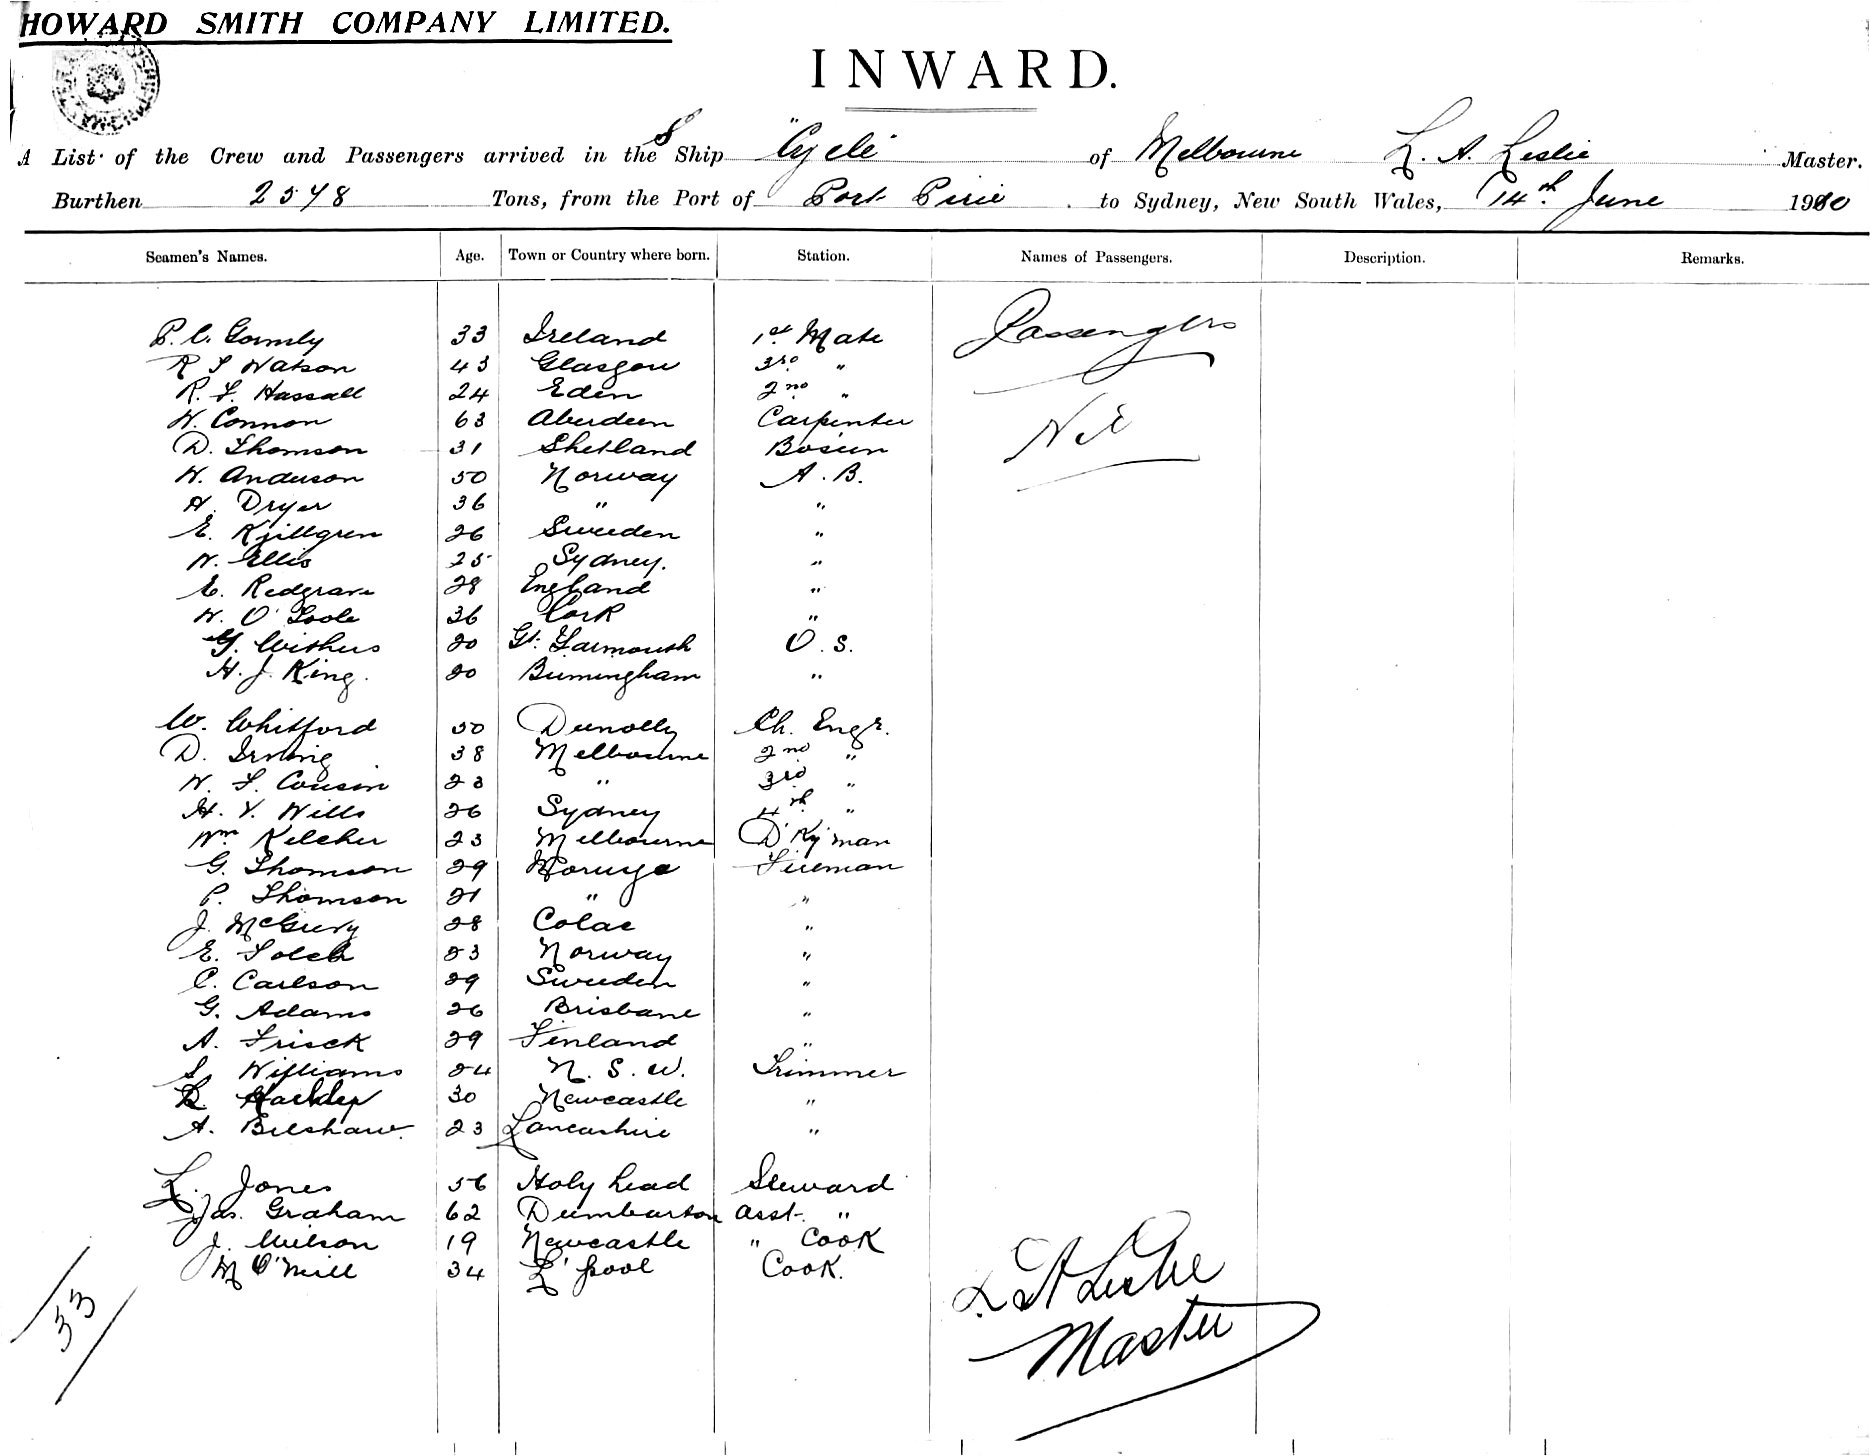 HOWARD SMITH COMPANY LIMITED.
INWARD.
A List of the Crew and Passengers arrived in the S Ship "Cycle" of Melbourne L. A. Leslie Master.
Burthen 2578 Tons, from the Port of Port Pirie to Sydney, New South Wales, 14th June 1910
Seamen's Names. Age. Town or Country where born. Station. Names of Passengers. Description. Remarks.
Passengers
P. C. Gormly 33 Ireland 1st Mate
R S Watson 43 Glasgow 3rd "
R. L. Hassall 24 Eden 2nd "
W. Connon 63 Aberdeen Carpenter
Nil
D. Thomson 31 Shetland Bosun
W. Anderson 50 Norway A. B.
H. Dryer 36 " "
E. Kjillgren 26 Sweden "
W. Ellis 25 Sydney. "
E. Redgrave 28 England "
W. O'Toole 36 Cork "
G. Withers 20 Gt. Yarmouth O. S.
H. J. King. 20 Birmingham "
W. Whitford 50 Dunolly Ch. Engr.
D. Irving 38 Melbourne 2nd "
W. F. Cousin 23 " 3rd "
H. V. Wills 26 Sydney 4th "
Wm Kelcher 23 Melbourne D'Ky'man
G. Thomson 29 Moruya Fireman
P. Thomson 21 " "
J. McGurry 28 Colac "
E. 23 Norway "
C. Carlson 29 Sweden "
G. Adams 26 Brisbane "
A. Frisck 29 Finland "
S. Williams 24 N. S. W. Trimmer
30 Newcastle "
A. Belshaw. 23 Lancashire "
L. Jones 56 Holy head Steward
Jas. Graham 62 Dumbarton Asst. "
J. Wilson 19 Newcastle " Cook
M O'Neill 34 L'pool Cook.
33
L A Leslie
Master